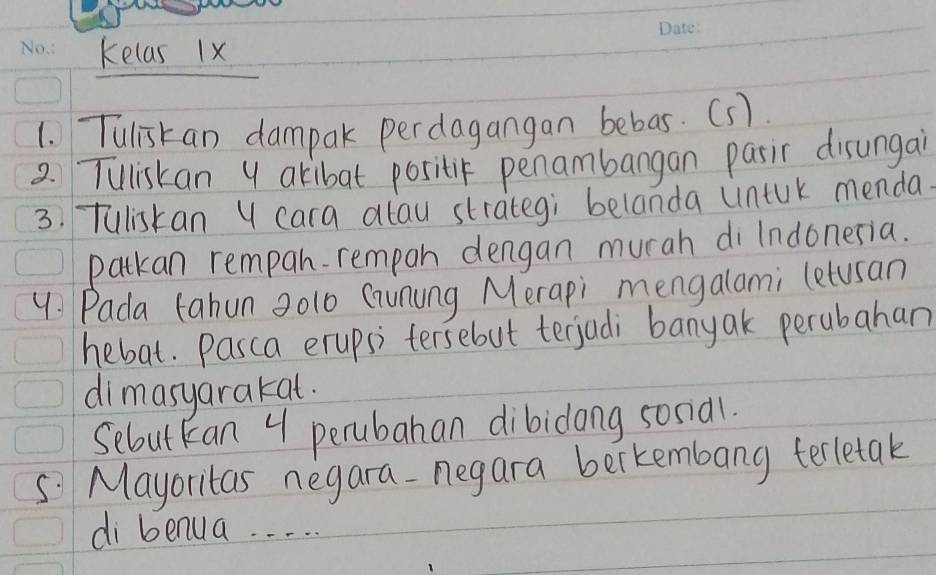 No.:
Date:
Kelas IX
1. Tuliskan dampak perdagangan bebas. (5).
2. Tuliskan 4 akibat positif penambangan pasir disungai
3. Tuliskan 4 cara atau strategi belanda untuk menda-
patkan rempah-rempah dengan murah di Indonesia.
4. Pada tahun 2010 Gunung Merapi mengalami letusan
hebat. Pasca erupsi tersebut terjadi banyak perubahan
dimasyarakat.
Sebutkan 4 perubahan dibidang sosial.
5. Mayoritas negara-negara berkembang terletak
di benua .....